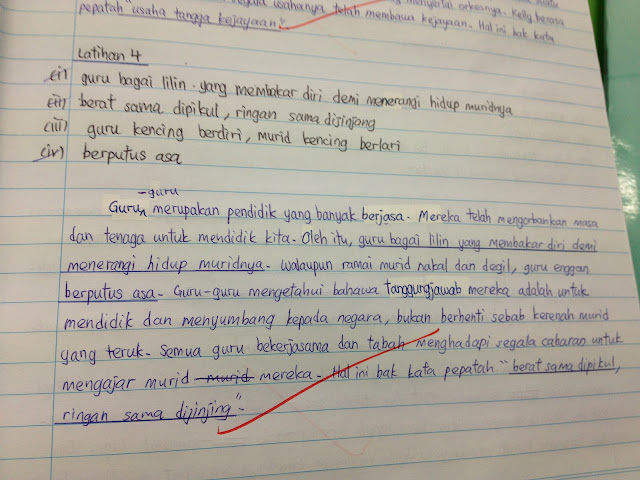 usahanya telah membawa kejayaan. Hal ini bak kata
pepatah "usaha tangga kejayaan".
Latihan 4
(i) guru bagai lilin yang membakar diri demi menerangi hidup muridnya
(ii) berat sama dipikul, ringan sama dijinjing
(iii) guru kencing berdiri, murid kencing berlari
(iv) berputus asa
-guru
Guru merupakan pendidik yang banyak berjasa. Mereka telah mengorbankan masa
dan tenaga untuk mendidik kita. Oleh itu, guru bagai lilin yang membakar diri demi
menerangi hidup muridnya. Walaupun ramai murid nakal dan degil, guru enggan
berputus asa. Guru-guru mengetahui bahawa tanggungjawab mereka adalah untuk
mendidik dan menyumbang kepada negara, bukan berhenti sebab kerenah murid
yang teruk. Semua guru bekerjasama dan tabah menghadapi segala cabaran untuk
mengajar murid murid mereka. Hal ini bak kata pepatah "berat sama dipikul,
ringan sama dijinjing".